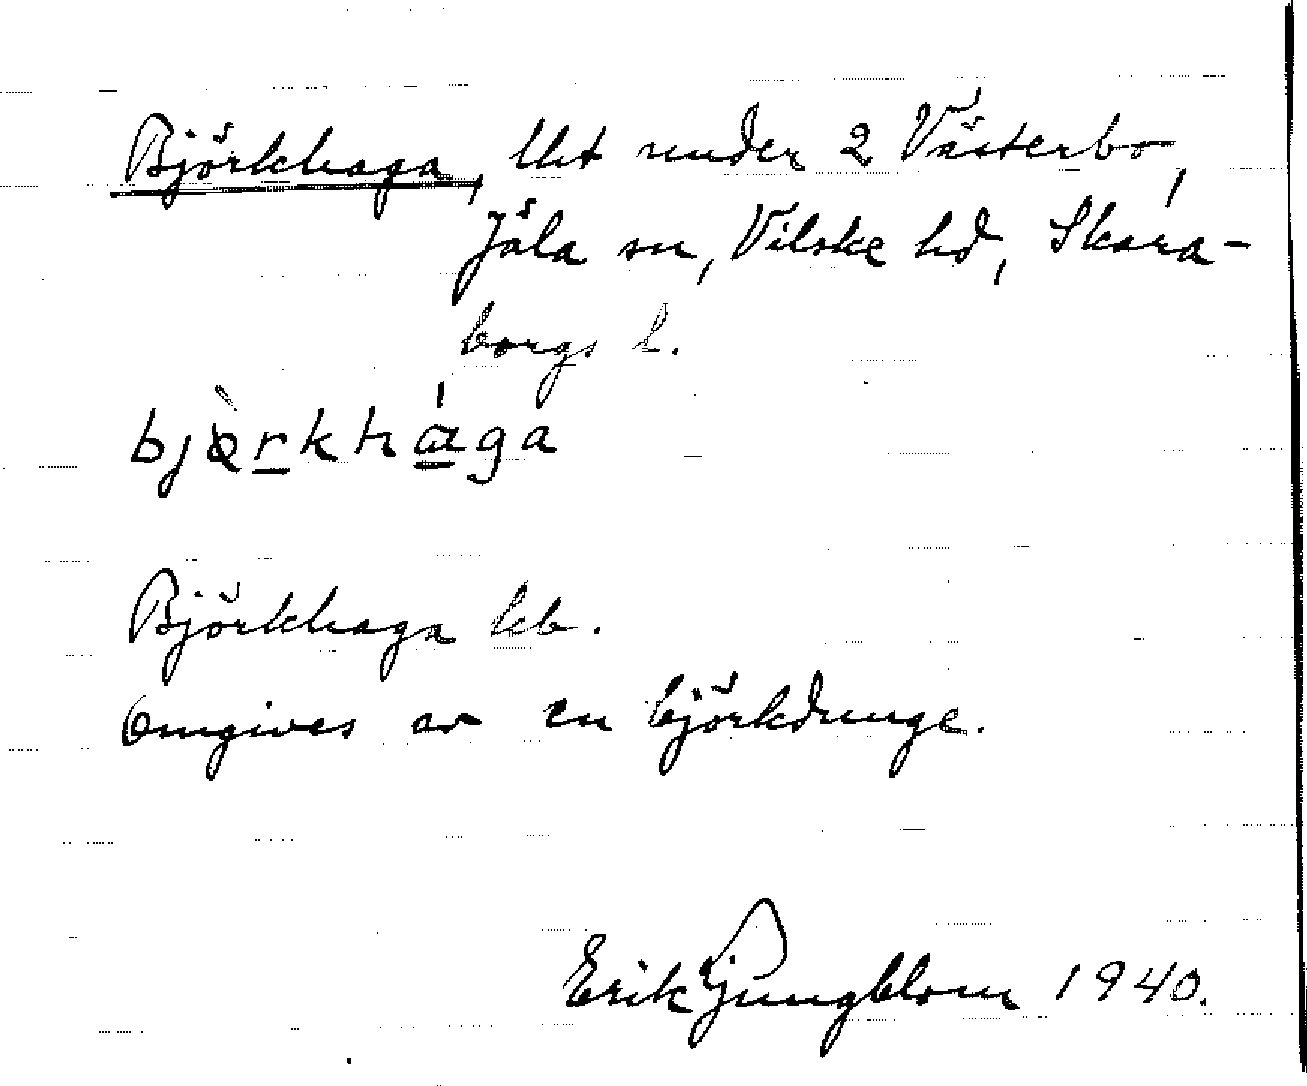 Björkhaga, lht under 2 Västerbo,
Jäla sn, Vilske hd, Skara-
borgs l.
bjö̀rkhága
Björkhaga kb.
Omgives av en björkdunge.
Erik Ljungblom 1940.